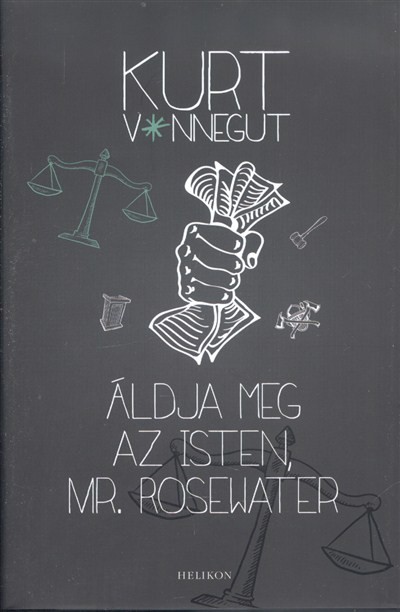 KURT
V*NNEGUT
ÁLDJA MEG
AZ ISTEN,
MR. ROSEWATER
HELIKON